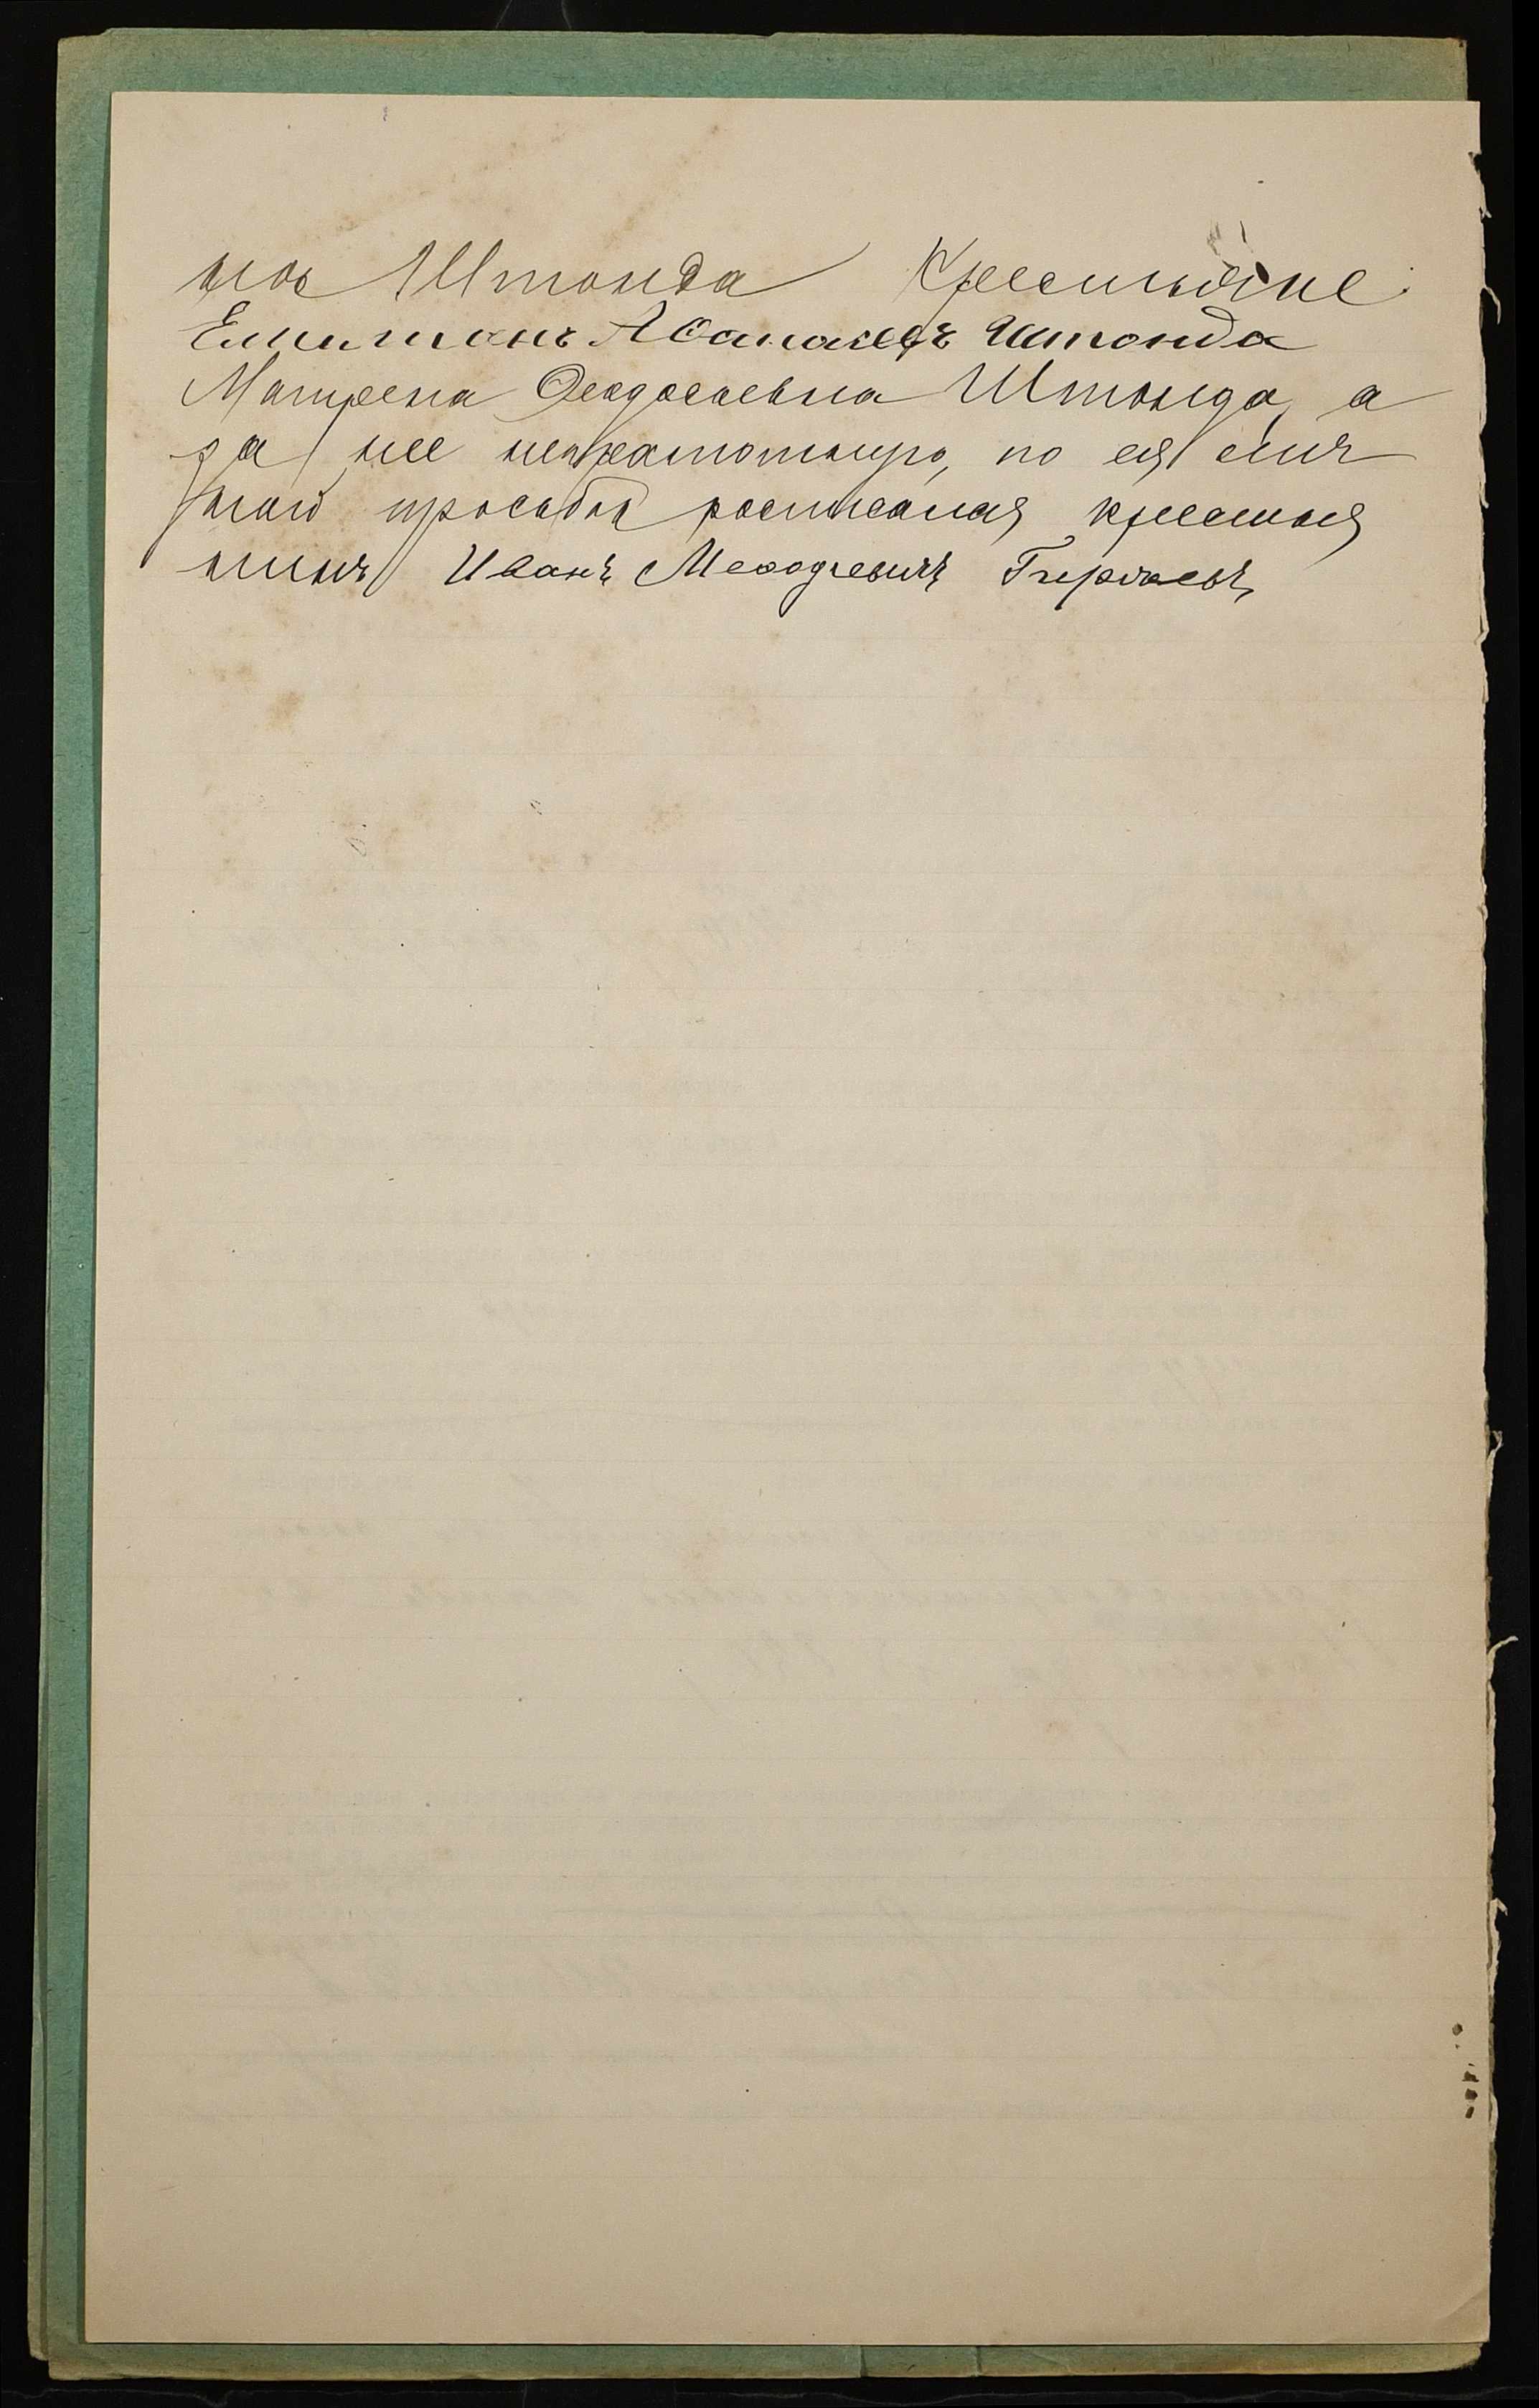 на Штонда Крестьяне:
Емилианъ Афанасьевъ Штонда
Матрена Феодосьевна Штонда, а
за нее неграмотную, по ея лич
ной просьбѣ росписался крестья
нинъ Иванъ Меѳодіевичъ